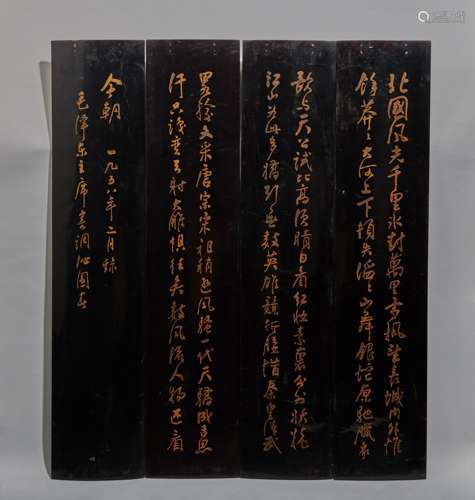 北國風光千里冰封萬里雪飄望長城内外惟
餘莽々大河上下頓失滔々山舞銀蛇原馳臘象
欲与天公試比高須晴日看紅妝素裹分外妖嬈
江山如此多嬌引無數英雄競折腰惜秦皇漢武
略輸文采唐宗宋祖稍遜風騷一代天驕成吉思
汗只識彎弓射大雕俱往矣數風流人物还看
今朝 一九五六年二月錄
毛澤东主席書詞沁園春